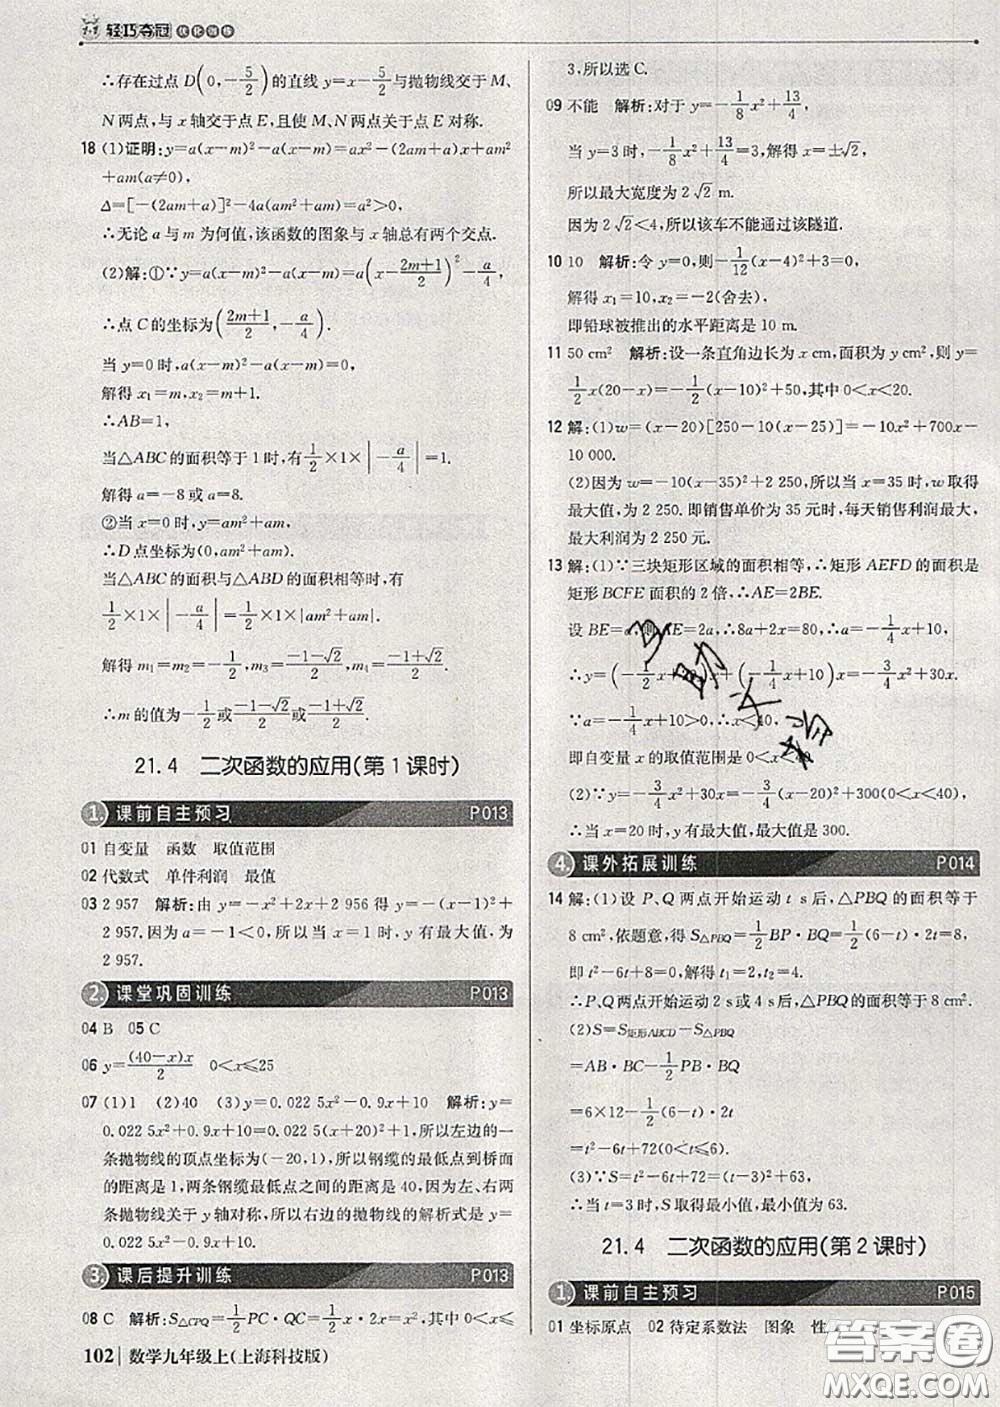 1+1 轻巧夺冠 优化训练
∴存在过点 D(0,-5/2)的直线 y=x-5/2与抛物线交于 M、
N 两点,与 x 轴交于点 E,且使 M、N 两点关于点 E 对称.
18 (1)证明:y=a(x-m)²-a(x-m)=ax²-(2am+a)x+am²
+am(a≠0),
Δ=[-(2am+a)]²-4a(am²+am)=a²>0,
∴无论 a 与 m 为何值,该函数的图象与 x 轴总有两个交点.
(2)解:①∵y=a(x-m)²-a(x-m)=a(x-(2m+1)/2)²-a/4,
∴点 C 的坐标为((2m+1)/2,-a/4).
当 y=0 时,a(x-m)²-a(x-m)=0.
解得 x₁=m,x₂=m+1.
∴AB=1,
当△ABC 的面积等于 1 时,有 1/2×1×|-a/4|=1.
解得 a=-8 或 a=8.
②当 x=0 时,y=am²+am,
∴D 点坐标为(0,am²+am).
当△ABC 的面积与△ABD 的面积相等时,有
1/2×1×|-a/4|=1/2×1×|am²+am|.
解得 m₁=m₂=-1/2,m₃=(-1-√2)/2,m₄=(-1+√2)/2.
∴m 的值为-1/2或(-1-√2)/2或(-1+√2)/2.
21.4 二次函数的应用(第 1 课时)
1. 课前自主预习 P013
01 自变量 函数 取值范围
02 代数式 单件利润 最值
03 2 957 解析:由 y=-x²+2x+2 956 得 y=-(x-1)²+
2 957.因为 a=-1<0,所以当 x=1 时,y 有最大值,为
2 957.
2. 课堂巩固训练 P013
04 B 05 C
06 y=(40-x)x/2 0<x≤25
07 (1)1 (2)40 (3)y=0.022 5x²-0.9x+10 解析:y=
0.022 5x²+0.9x+10=0.022 5(x+20)²+1,所以左边的一
条抛物线的顶点坐标为(-20,1),所以钢缆的最低点到桥面
的距离是 1,两条钢缆最低点之间的距离是 40,因为左、右两
条抛物线关于 y 轴对称,所以右边的抛物线的解析式是 y=
0.022 5x²-0.9x+10.
3. 课后提升训练 P013
08 C 解析:S△CPQ=1/2PC·QC=1/2x·2x=x²,其中 0<x≤
102 数学九年级上(上海科技版)
3,所以选 C.
09 不能 解析:对于 y=-1/8x²+13/4,
当 y=3 时,-1/8x²+13/4=3,解得 x=±√2,
所以最大宽度为 2√2 m.
因为 2√2<4,所以该车不能通过该隧道.
10 10 解析:令 y=0,则-1/12(x-4)²+3=0,
解得 x₁=10,x₂=-2(舍去),
即铅球被推出的水平距离是 10 m.
11 50 cm² 解析:设一条直角边长为 x cm,面积为 y cm²,则 y=
1/2x(20-x)=-1/2(x-10)²+50,其中 0<x<20.
12 解:(1)w=(x-20)[250-10(x-25)]=-10x²+700x-
10 000.
(2)因为 w=-10(x-35)²+2 250,所以当 x=35 时,w 取得
最大值,为 2 250.即销售单价为 35 元时,每天销售利润最大,
最大利润为 2 250 元.
13 解:(1)∵三块矩形区域的面积相等,∴矩形 AEFD 的面积是
矩形 BCFE 面积的 2 倍,∴AE=2BE.
设 BE=a,则AE=2a,∴8a+2x=80,∴a=-1/4x+10,
∴y=(-1/2x+20)x+(-1/4x+10)x=-3/4x²+30x,
∵a=-1/4x+10>0,∴x<40,
即自变量 x 的取值范围是 0<x<40.
(2)∵y=-3/4x²+30x=-3/4(x-20)²+300(0<x<40),
∴当 x=20 时,y 有最大值,最大值是 300.
4. 课外拓展训练 P014
14 解:(1)设 P、Q 两点开始运动 t s 后,△PBQ 的面积等于
8 cm²,依题意,得 S△PBQ=1/2BP·BQ=1/2(6-t)·2t=8,
即 t²-6t+8=0,解得 t₁=2,t₂=4.
∴P、Q 两点开始运动 2 s 或 4 s 后,△PBQ 的面积等于 8 cm².
(2)S=S矩形ABCD-S△PBQ
=AB·BC-1/2PB·BQ
=6×12-1/2(6-t)·2t
=t²-6t+72(0<t≤6).
(3)∵S=t²-6t+72=(t-3)²+63,
∴当 t=3 时,S 取得最小值,最小值为 63.
21.4 二次函数的应用(第 2 课时)
1. 课前自主预习 P015
01 坐标原点 02 待定系数法 图象 性
答案圈
MXQE.COM